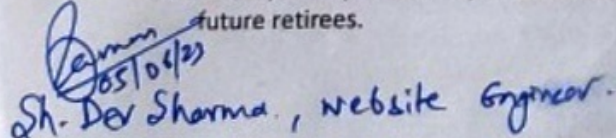 future retirees.
05/06/23
Sh. Dev Sharma, website Engineer.